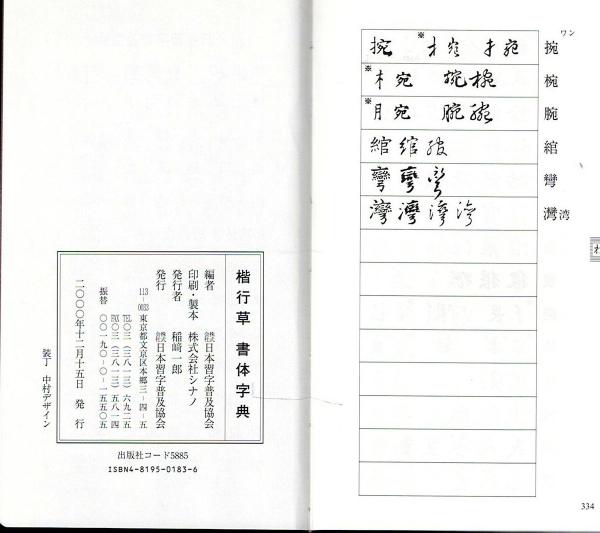 ワン
捥 捥 捥 捥
椀 椀 椀 椀
腕 腕 腕 腕
綰 綰 綰 綰
彎 彎 彎 彎
灣湾 灣 灣 灣 湾
334
楷行草 書体字典
編者 株式会社日本習字普及協会
印刷・製本 株式会社シナノ
発行者 稲﨑一郎
発行 株式会社日本習字普及協会
113-0033 東京都文京区本郷三-四-五
TEL〇三(三八一三)六九二五
FAX〇三(三八一三)五八一四
振替 〇〇一九〇-〇-一五五〇五
二〇〇〇年十二月十五日 発行
装丁 中村デザイン
出版社コード5885
ISBN4-8195-0183-6